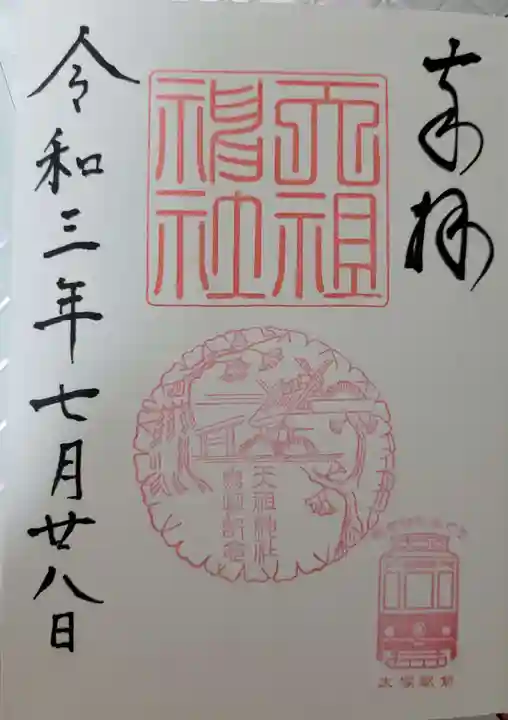 奉拝
天祖
神社
天祖神社
大塚駅前
令和三年七月廿八日